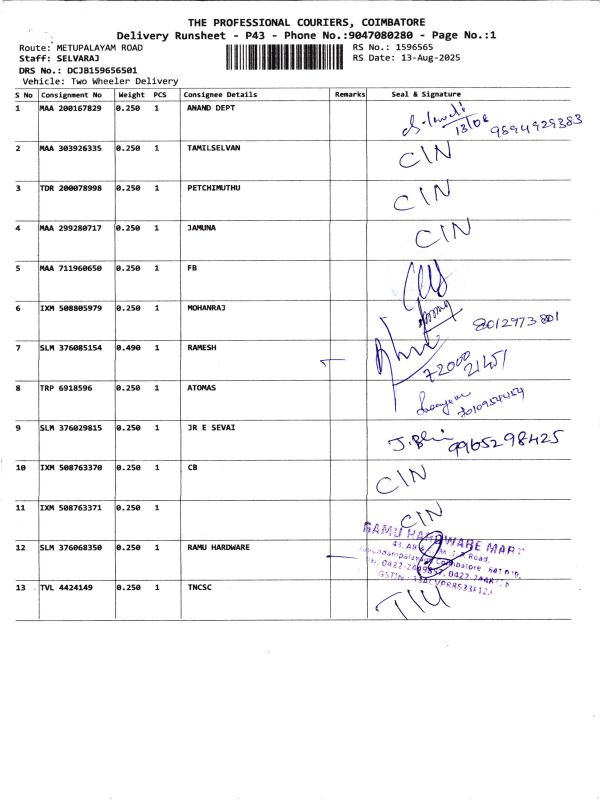 THE PROFESSIONAL COURIERS, COIMBATORE
Delivery Runsheet - P43 - Phone No.:9047080280 - Page No.:1
Route: METUPALAYAM ROAD RS No.: 1596565
Staff: SELVARAJ RS Date: 13-Aug-2025
DRS No.: DCJB159656501
Vehicle: Two Wheeler Delivery
S No Consignment No Weight PCS Consignee Details Remarks Seal & Signature
1 MAA 200167829 0.250 1 ANAND DEPT
13/08 9694929383
2 MAA 303926335 0.250 1 TAMILSELVAN CIN
3 TDR 200078998 0.250 1 PETCHIMUTHU CIN
4 MAA 299280717 0.250 1 JAMUNA CIN
5 MAA 711960650 0.250 1 FB
6 IXM 508805979 0.250 1 MOHANRAJ 8012973801
7 SLM 376085154 0.490 1 RAMESH 72000
21451
8 TRP 6918596 0.250 1 ATOMAS
7010954454
9 SLM 376029815 0.250 1 JR E SEVAI 9965298425
10 IXM 508763370 0.250 1 CB CIN
11 IXM 508763371 0.250 1 CIN
RAMU HARDWARE MART
12 SLM 376068350 0.250 1 RAMU HARDWARE
13 TVL 4424149 0.250 1 TNCSC